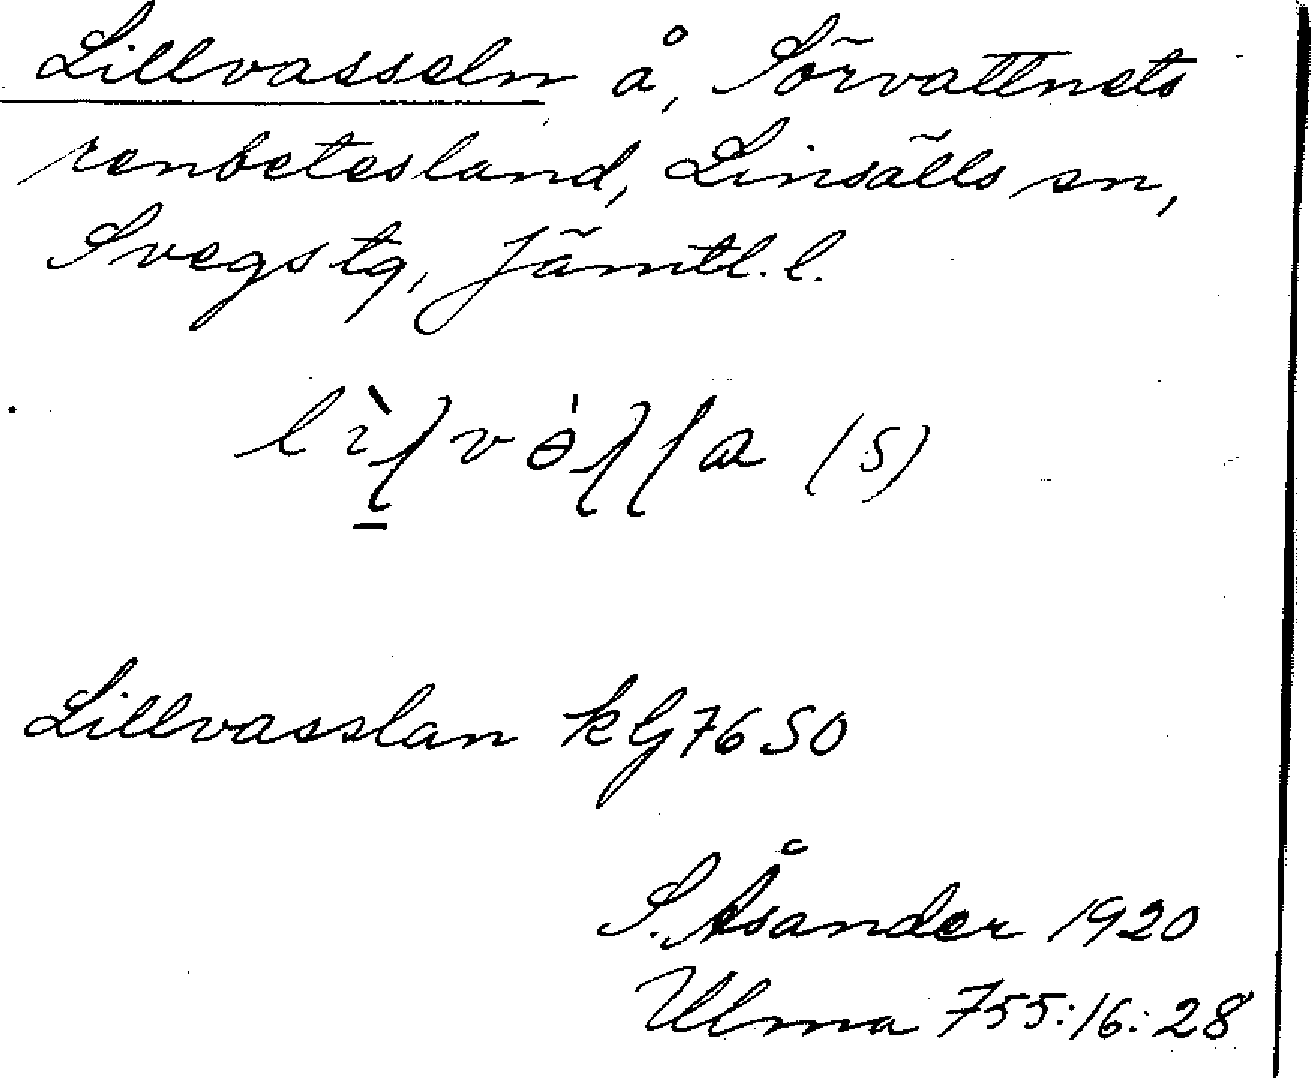 Lillvasseln å, Sörvattnets
renbetesland, Linsälls sn,
Svegs tg, Jämtl. l.
(S)
Lillvasslan kG 76 SO
S. Åsander 1920
Ulma 755:16:28